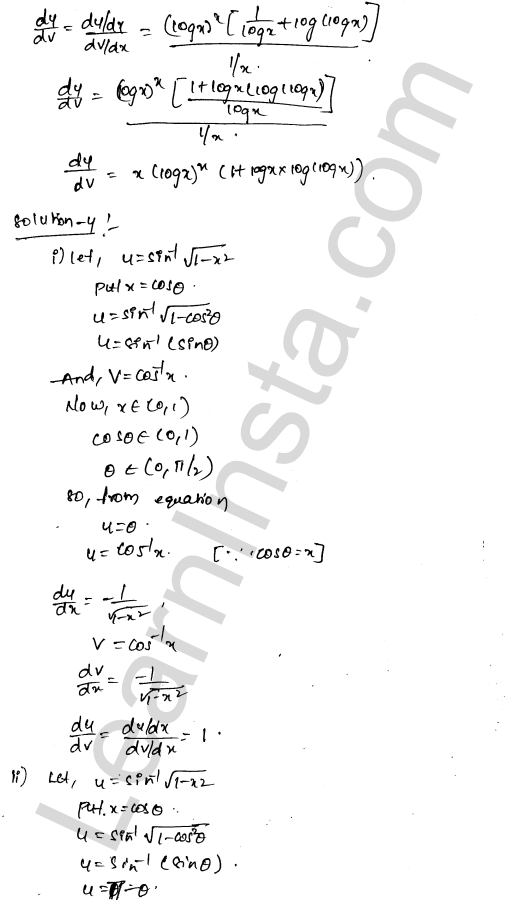 dy/dv = (dy/dx)/(dv/dx) = (logx)^x [1/logx + log(logx)] / (1/x).
dy/dv = (logx)^x [(1+logx(log(logx))/logx] / (1/x).
dy/dv = x(logx)^x (1+logx×log(logx)).
Solution-4:-
i) Let, u=sin⁻¹√1-x²
Put x=cosθ.
u=sin⁻¹√1-cos²θ
u=sin⁻¹(sinθ)
And, V=cos⁻¹x.
Now, x∈(0,1)
cosθ∈(0,1)
θ∈(0,π/2)
So, from equation
u=θ.
u=cos⁻¹x. [∵ cosθ=x]
du/dx = -1/√1-x²,
V=cos⁻¹x
dv/dx = -1/√1-x²
du/dv = (du/dx)/(dv/dx) = 1.
ii) Let, u=sin⁻¹√1-x2
Put. x=cosθ.
u=sin⁻¹√1-cos²θ
u=sin⁻¹(sinθ).
u= -θ.
LearnInsta.com